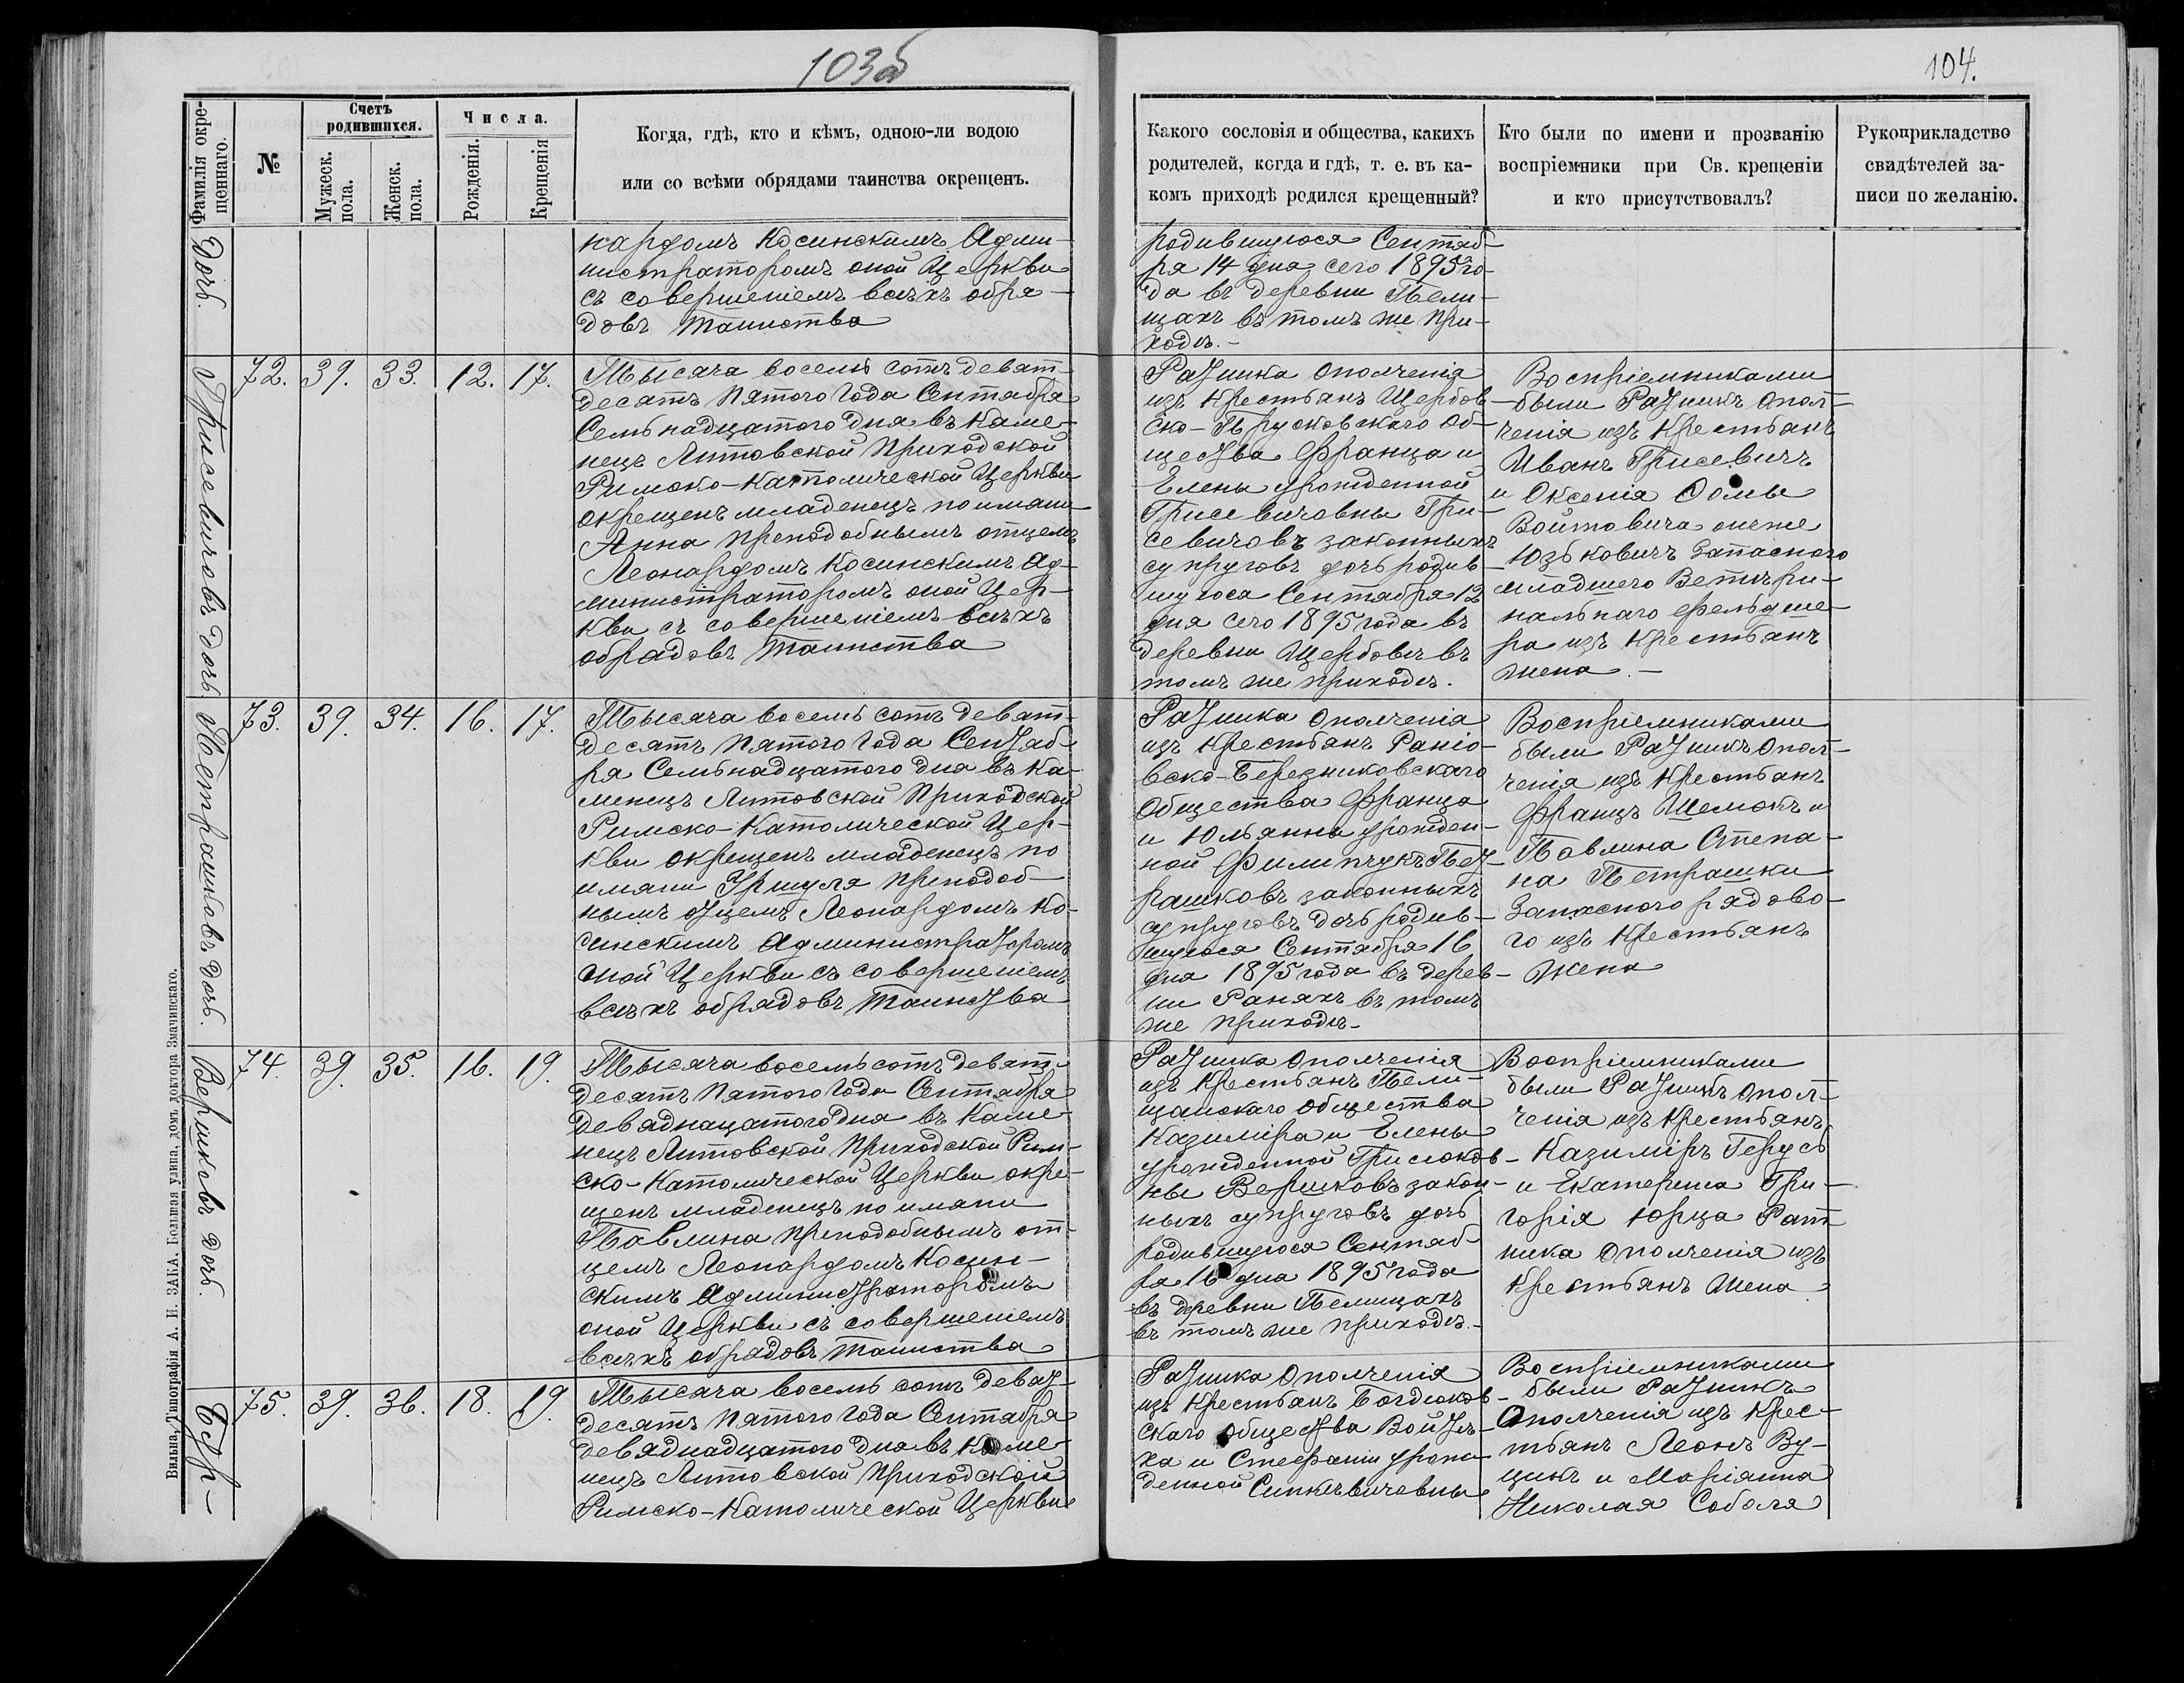 103б
104.
Фамилія окре-
щеннаго.
№
Счетъ
родившихся.
Мужеск.
пола.
Женск.
пола.
Числа.
Рожденія.
Крещенія
Когда, гдѣ, кто и кѣмъ, одною-ли водою
или со всѣми обрядами таинства окрещенъ.
Какого сословія и общества, какихъ
родителей, когда и гдѣ, т. е. въ ка-
комъ приходѣ родился крещенный?
Кто были по имени и прозванію
воспріемники при Св. крещеніи
и кто присутствовалъ?
Рукоприкладство
свидѣтелей за-
писи по желанію.
Дочь.
нардомъ Косинскимъ Адми-
нистраторомъ оной Церкви
съ совершеніемъ всѣхъ обря-
довъ Таинства
родившуюся Сентяб-
ря 14 дня сего 1895 го-
да въ деревни Пели-
щахъ въ томъ же при-
ходѣ.-
Грисевичовъ дочь
72. 39. 33. 12. 17.
Тысяча восемь сотъ девят-
десятъ Пятого Года Сентября
Семьнадцатого дня въ Каме-
нецъ Литовской Приходской
Римско-Католической Церкви
окрещенъ младенецъ по имяни
Анна преподобнымъ отцемъ
Леонардомъ Косинскимъ Ад-
министраторомъ оной Цер-
кви съ совершеніемъ всѣхъ
обрядовъ Таинства
Ратника Ополченія
изъ Крестьянъ Щербов-
ско-Прусковского Об-
щества Франца и
Елены урожденной
Грисевичовны Гри-
севичовъ законныхъ
супруговъ дочь родив-
шуюся Сентября 12
дня сего 1895 года въ
деревни Щербовѣ въ
томъ же приходѣ.
Воспріемниками
были Ратникъ Опол-
ченія изъ Крестьянъ
Иванъ Грисевичъ
и Оксенія Фомы
Войтовича онъ же
Юзьковичъ Запасного
младшего Ветери-
нальнаго Фельдше-
ра изъ Крестьянъ
жена.-
Петрашковъ дочь.
73. 39. 34. 16. 17.
Тысяча восемь сотъ девят-
десятъ Пятого Года Сентяб-
ря Семьнадцатого дня въ Ка-
менецъ Литовской Приходской
Римско-Католической Цер-
кви окрещенъ младенецъ по
имяни Уршуля преподоб-
нымъ отцемъ Леонардомъ Ко-
синскимъ Администраторомъ
оной Церкви съ совершеніемъ
всѣхъ обрядовъ Таинства
Ратника Ополченія
изъ Крестьянъ Раню-
вско-Березниковскаго
Общества Франца
и Юльянны урожден-
ной Филипчукъ Пет-
рашковъ законныхъ
супруговъ дочь родив-
шуюся Сентября 16
дня 1895 года въ дерев-
ни Раняхъ въ томъ
же приходѣ-
Воспріемниками
были Ратникъ Опол-
ченія изъ Крестьянъ
Францъ Шемокъ и
Павлина Степа-
на Петрашки
Запасного рядово-
го изъ Крестьянъ
Жена
Вершковъ дочь.
74. 39. 35. 16. 19.
Тысяча восемь сотъ девят-
десятъ Пятого Года Сентября
Девяднацатого дня въ Каме-
нецъ Литовской Приходской Рим-
ско-Католической Церкви окре-
щенъ младенецъ по имяни
Павлина преподобнымъ от-
цемъ Леонардомъ Косин-
скимъ Администраторомъ
оной Церкви съ совершеніемъ
всѣхъ обрядовъ Таинства
Ратника Ополченія
изъ Крестьянъ Пели-
щанскаго общества
Казимира и Елены
урожденной Грисюков-
ны Вершковъ закон-
ныхъ супруговъ дочь
родившуюся Сентяб-
ря 16 дня 1895 года
въ деревни Пелищахъ
въ томъ же приходѣ.-
Воспріемниками
были Ратникъ Опол-
ченія изъ Крестьянъ
Казиміръ Герусь
и Екатерина Гри-
горія Юрца Рат-
ника Ополченія изъ
Крестьянъ Жена
75. 39. 36. 18. 19.
Тысяча восемь сотъ девят-
десятъ Пятого Года Сентября
девяднадцатого дня въ Каме-
нецъ Литовской Приходской
Римско-Католической Церкви
Ратника Ополченія
изъ Крестьянъ Богдюков-
скаго Общества Войтѣ-
ха и Стефаніи урож-
денной Синкевичевны
Воспріемниками
были Ратникъ
Ополченія изъ Крес-
тьянъ Леонъ Ву-
щикъ и Маріянна
Николая Соболя
Вильна, Типографія А. И. ЗАКА. Большая улица, домъ доктора Змачинскаго.